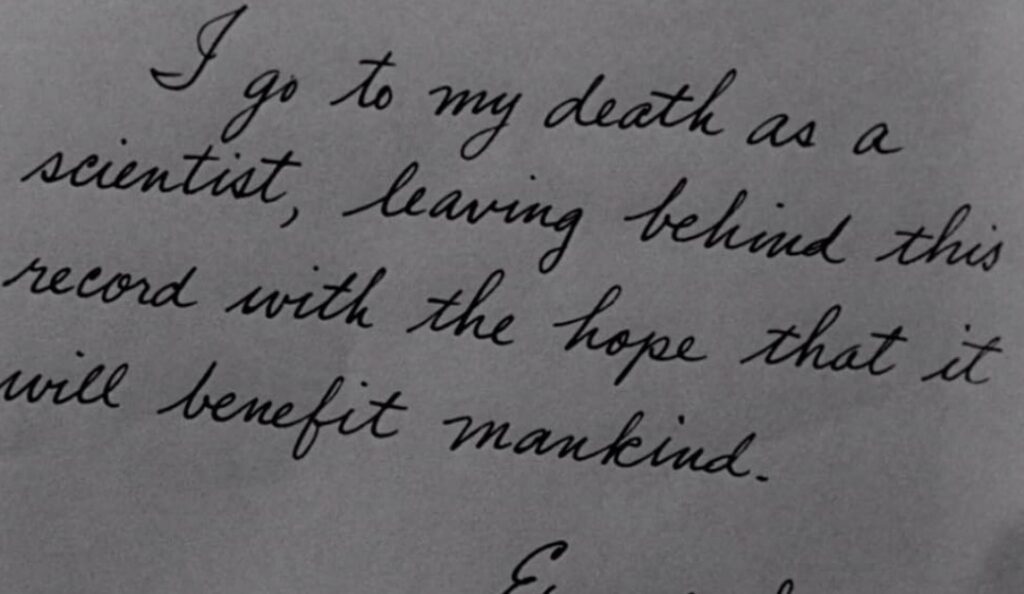 I go to my death as a
scientist, leaving behind this
record with the hope that it
will benefit mankind.